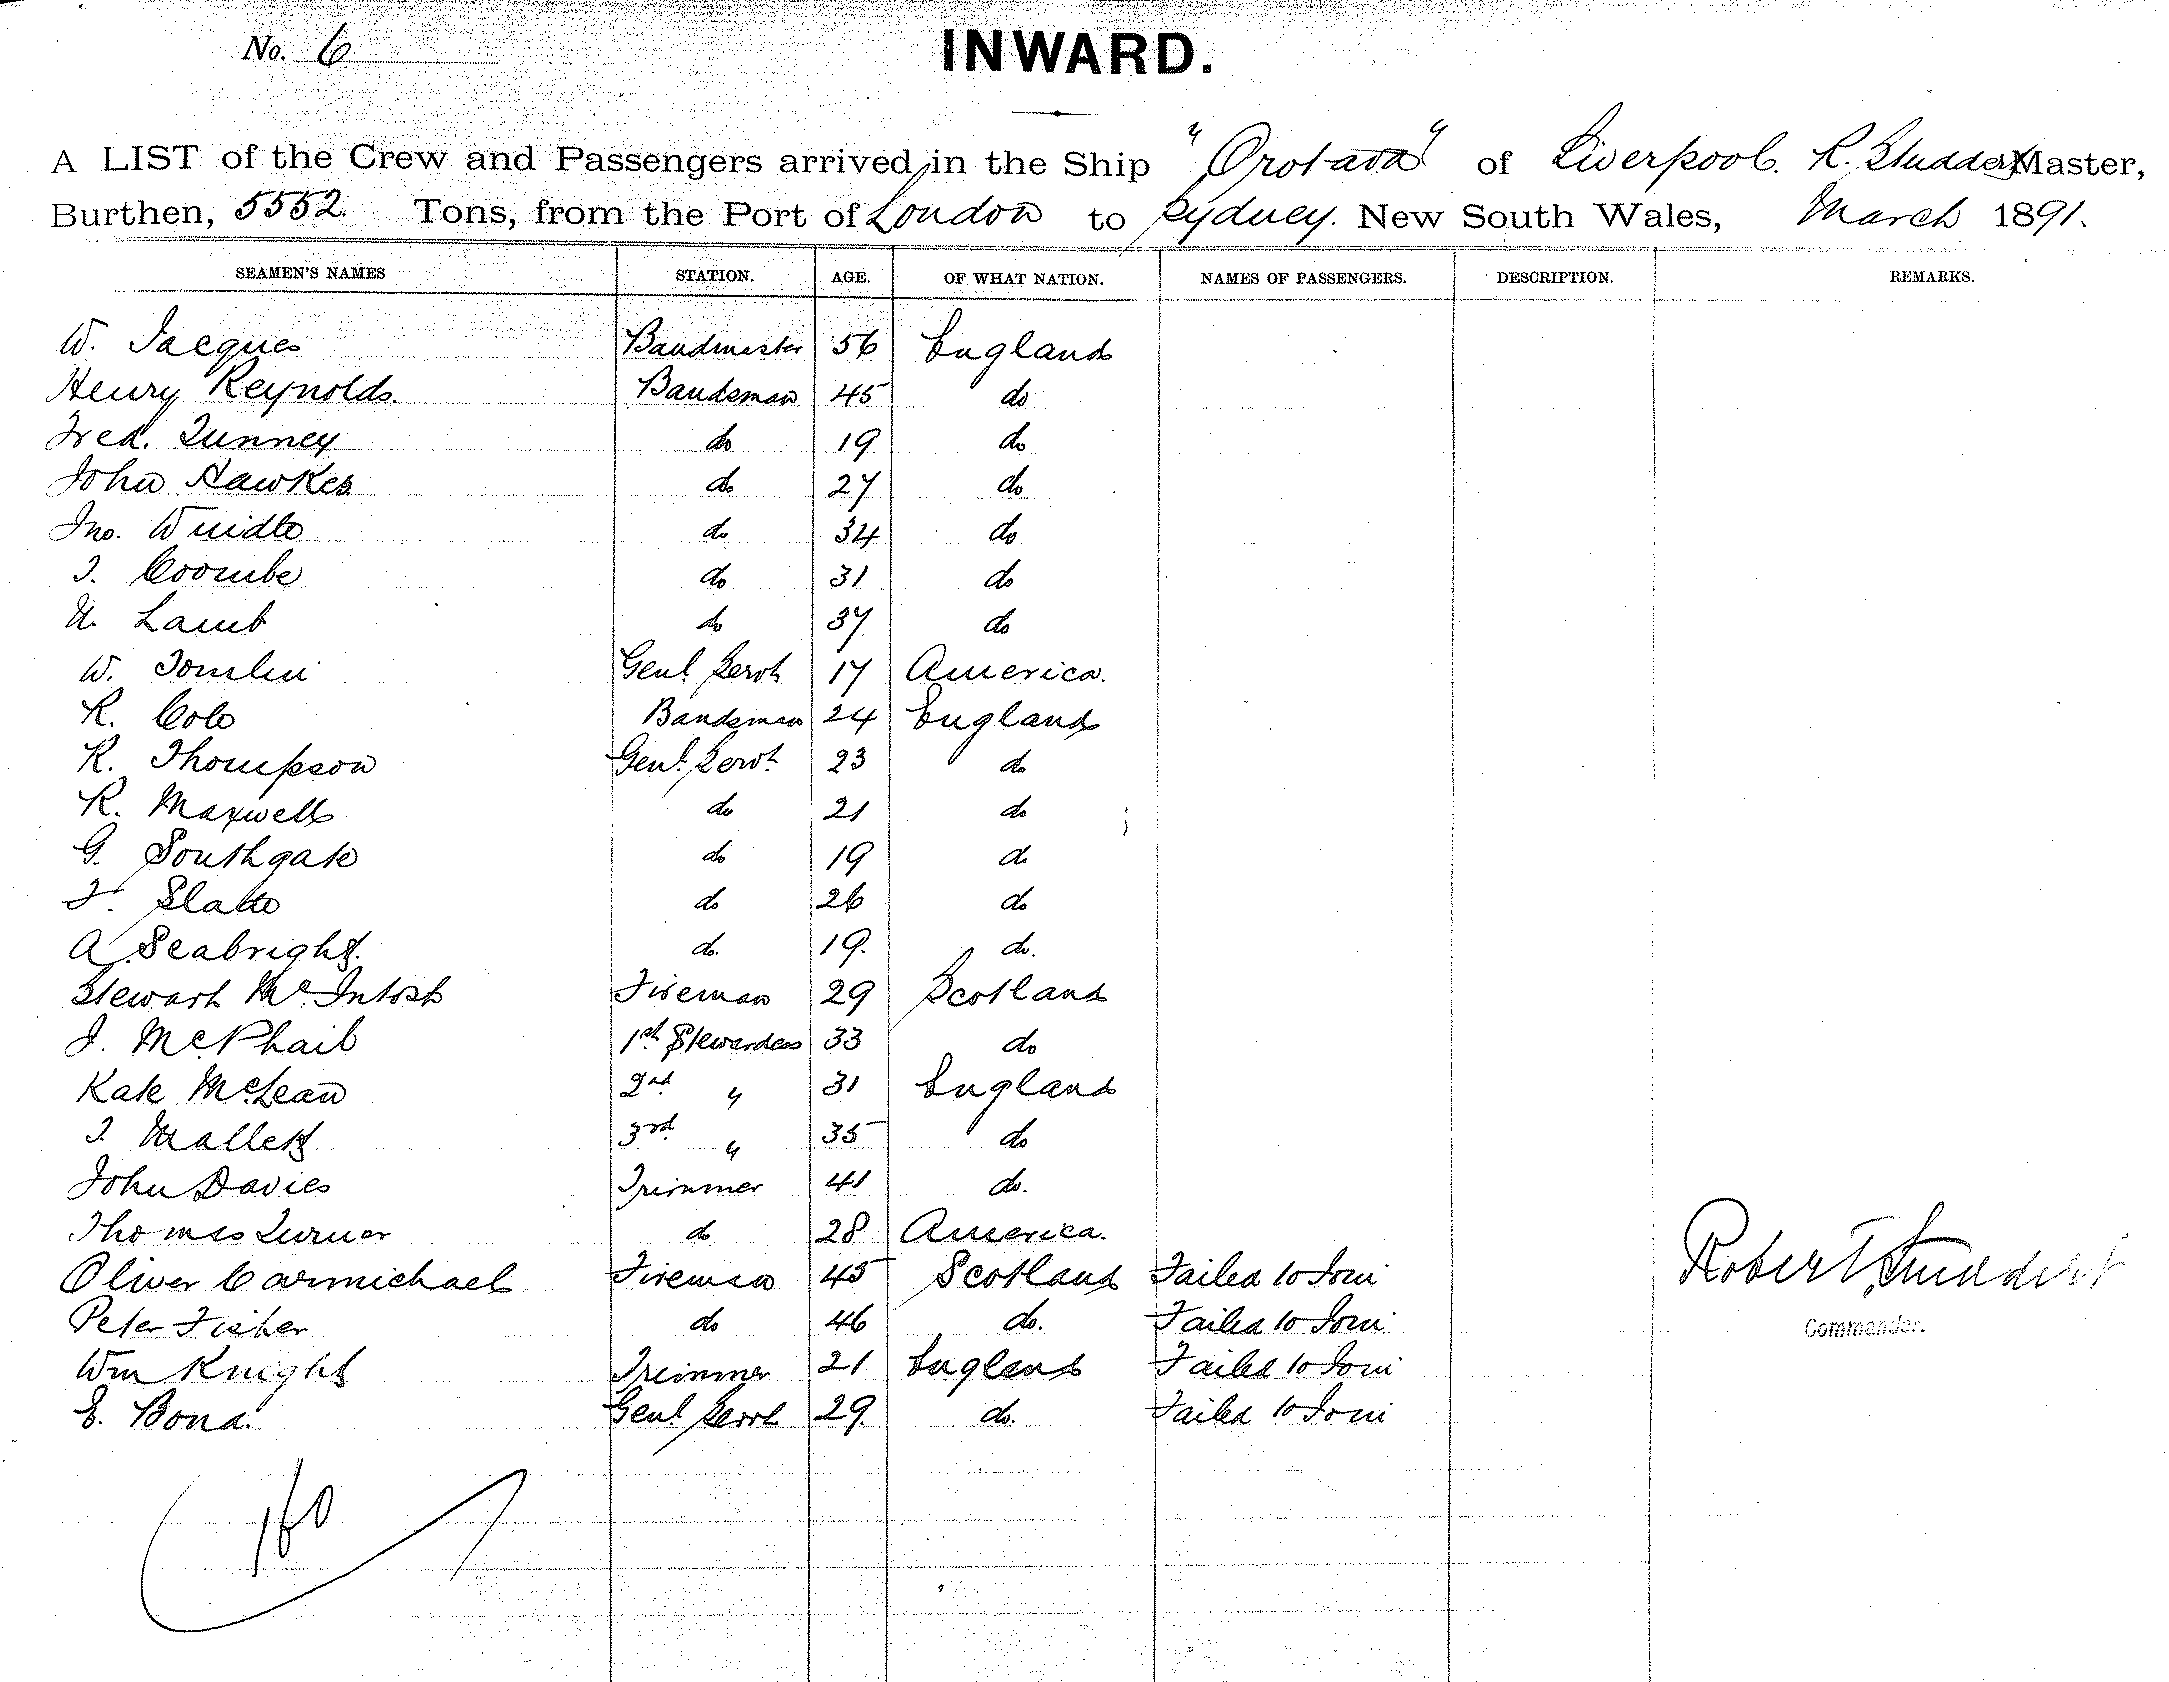 No. 6
INWARD.
A LIST of the Crew and Passengers arrived in the Ship "Orotava" of Liverpool. R. Studdert Master,
Burthen, 5552 Tons, from the Port of London to Sydney. New South Wales, March 1891.
SEAMEN'S NAMES STATION. AGE. OF WHAT NATION. NAMES OF PASSENGERS. DESCRIPTION. REMARKS.
W. Jacques Bandmaster 56 England
Henry Reynolds. Bandsman 45 do
Fred. Tunney do 19 do
John Hawkes do 27 do
Jno. Windle do 34 do
J. Coombe do 31 do
Lamb do 37 do
W. Tomlin Genl. Servt 17 America.
R. Cole Bandsman 24 England
R. Thompson Genl. Servt 23 do
R. Maxwell do 21 do
G. Southgate do 19 do
F. Slatte do 26 do
A. Seabright. do. 19. do.
Stewart McIntosh Fireman 29 Scotland
J. McPhail 1st Stewardess 33 do
Kate McLean 2nd " 31 England
J. Mallett 3rd " 35 do
John Davies Trimmer 41 do.
Thomas Turner do 28 America.
Oliver Carmichael Fireman 45 Scotland Failed to Join
Peter Fisher do 46 do. Failed to Join
Wm Knight Trimmer 21 England Failed to Join
E. Bond. Genl. Servt 29. do. Failed to Join
Robert Studdert
Commander.
160